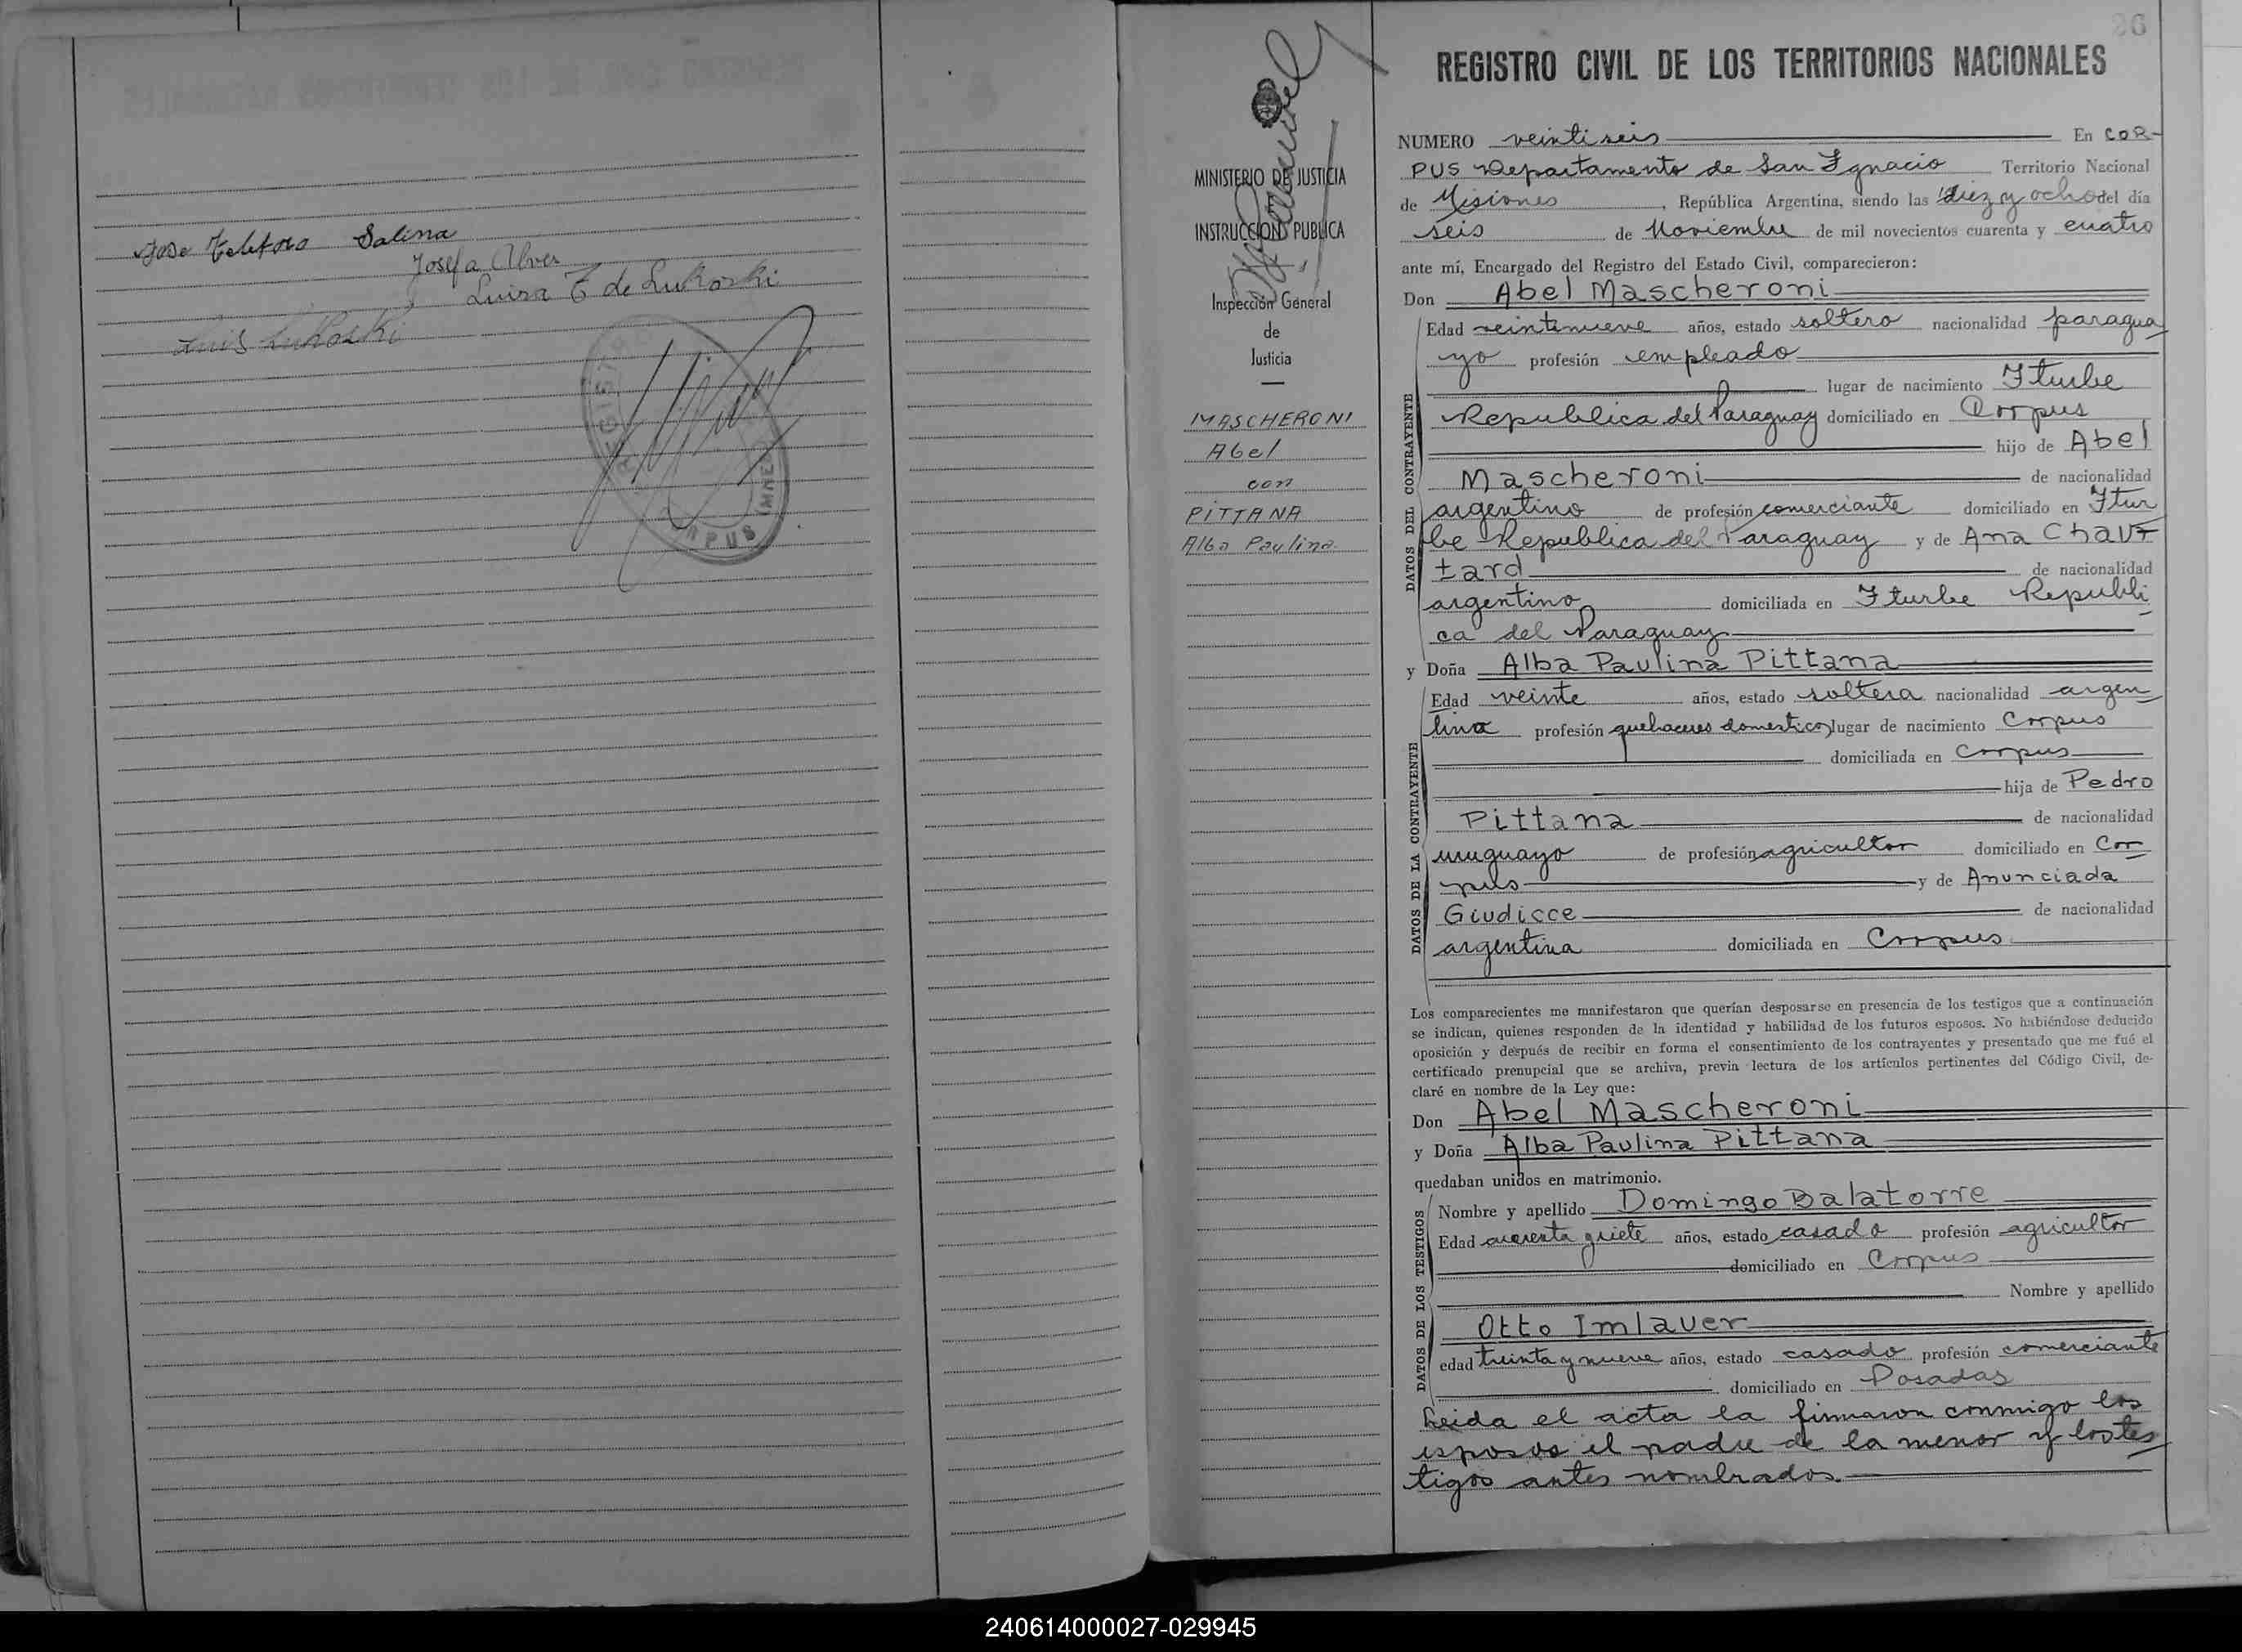 Jose Telesforo Salina
Josefa Alves
Luisa T de Lukoski
Luis Lukoski
REGISTRO
CORPUS
26
REGISTRO CIVIL DE LOS TERRITORIOS NACIONALES
MINISTERIO DE JUSTICIA
INSTRUCCION PUBLICA
Inspección General
de
Justicia
MASCHERONI
Abel
con
PITTANA
Alba Paulina
NUMERO veintiseis En COR-
PUS Departamento de San Ignacio Territorio Nacional
de Misiones, República Argentina, siendo las diez y ocho del día
seis de Noviembre de mil novecientos cuarenta y cuatro
ante mí, Encargado del Registro del Estado Civil, comparecieron:
Don Abel Mascheroni
DATOS DEL CONTRAYENTE
Edad veintinueve años, estado soltero nacionalidad paragua
yo profesión empleado
lugar de nacimiento Iturbe
Republica del Paraguay domiciliado en Corpus
hijo de Abel
Mascheroni de nacionalidad
argentino de profesión comerciante domiciliado en Itur
be Republica del Paraguay y de Ana Chau
tard de nacionalidad
argentino domiciliada en Iturbe Republi
ca del Paraguay
y Doña Alba Paulina Pittana
DATOS DE LA CONTRAYENTE
Edad veinte años, estado soltera nacionalidad argen
tina profesión quehaceres domesticos lugar de nacimiento Corpus
domiciliada en Corpus
hija de Pedro
Pittana de nacionalidad
uruguayo de profesión agricultor domiciliado en Cor
pus y de Anunciada
Giudicce de nacionalidad
argentina domiciliada en Corpus
Los comparecientes me manifestaron que querían desposarse en presencia de los testigos que a continuación
se indican, quienes responden de la identidad y habilidad de los futuros esposos. No habiéndose deducido
oposición y después de recibir en forma el consentimiento de los contrayentes y presentado que me fué el
certificado prenupcial que se archiva, previa lectura de los artículos pertinentes del Código Civil, de-
claré en nombre de la Ley que:
Don Abel Mascheroni
y Doña Alba Paulina Pittana
quedaban unidos en matrimonio.
DATOS DE LOS TESTIGOS
Nombre y apellido Domingo Dalatorre
Edad cuarenta y siete años, estado casado profesión agricultor
domiciliado en Corpus
Nombre y apellido
Otto Imlauer
edad treinta y nueve años, estado casado profesión comerciante
domiciliado en Posadas
Leida el acta la firmaron conmigo los
esposos el padre de la menor y los tes
tigos antes nombrados.
240614000027-029945